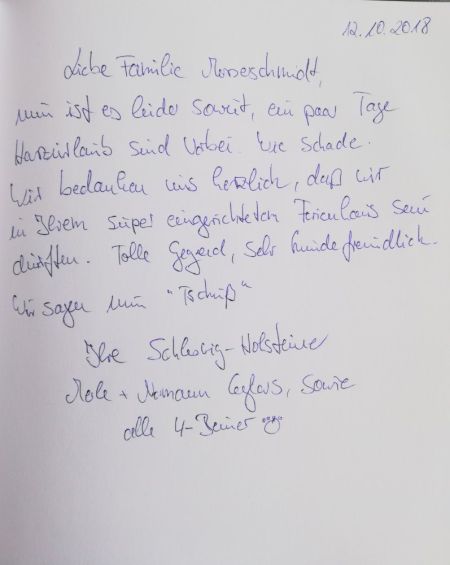 12.10.2018
Liebe Familie Messerschmidt,
nun ist es leider soweit, ein paar Tage
Harzurlaub sind vorbei. Wie schade.
Wir bedanken uns herzlich, daß wir
in Ihrem super eingerichteten Ferienhaus sein
durften. Tolle Gegend, sehr hundefreundlich.
Wir sagen nun "Tschüß"
Ihre Schleswig-Holsteiner
+ sowie
alle 4-Beiner